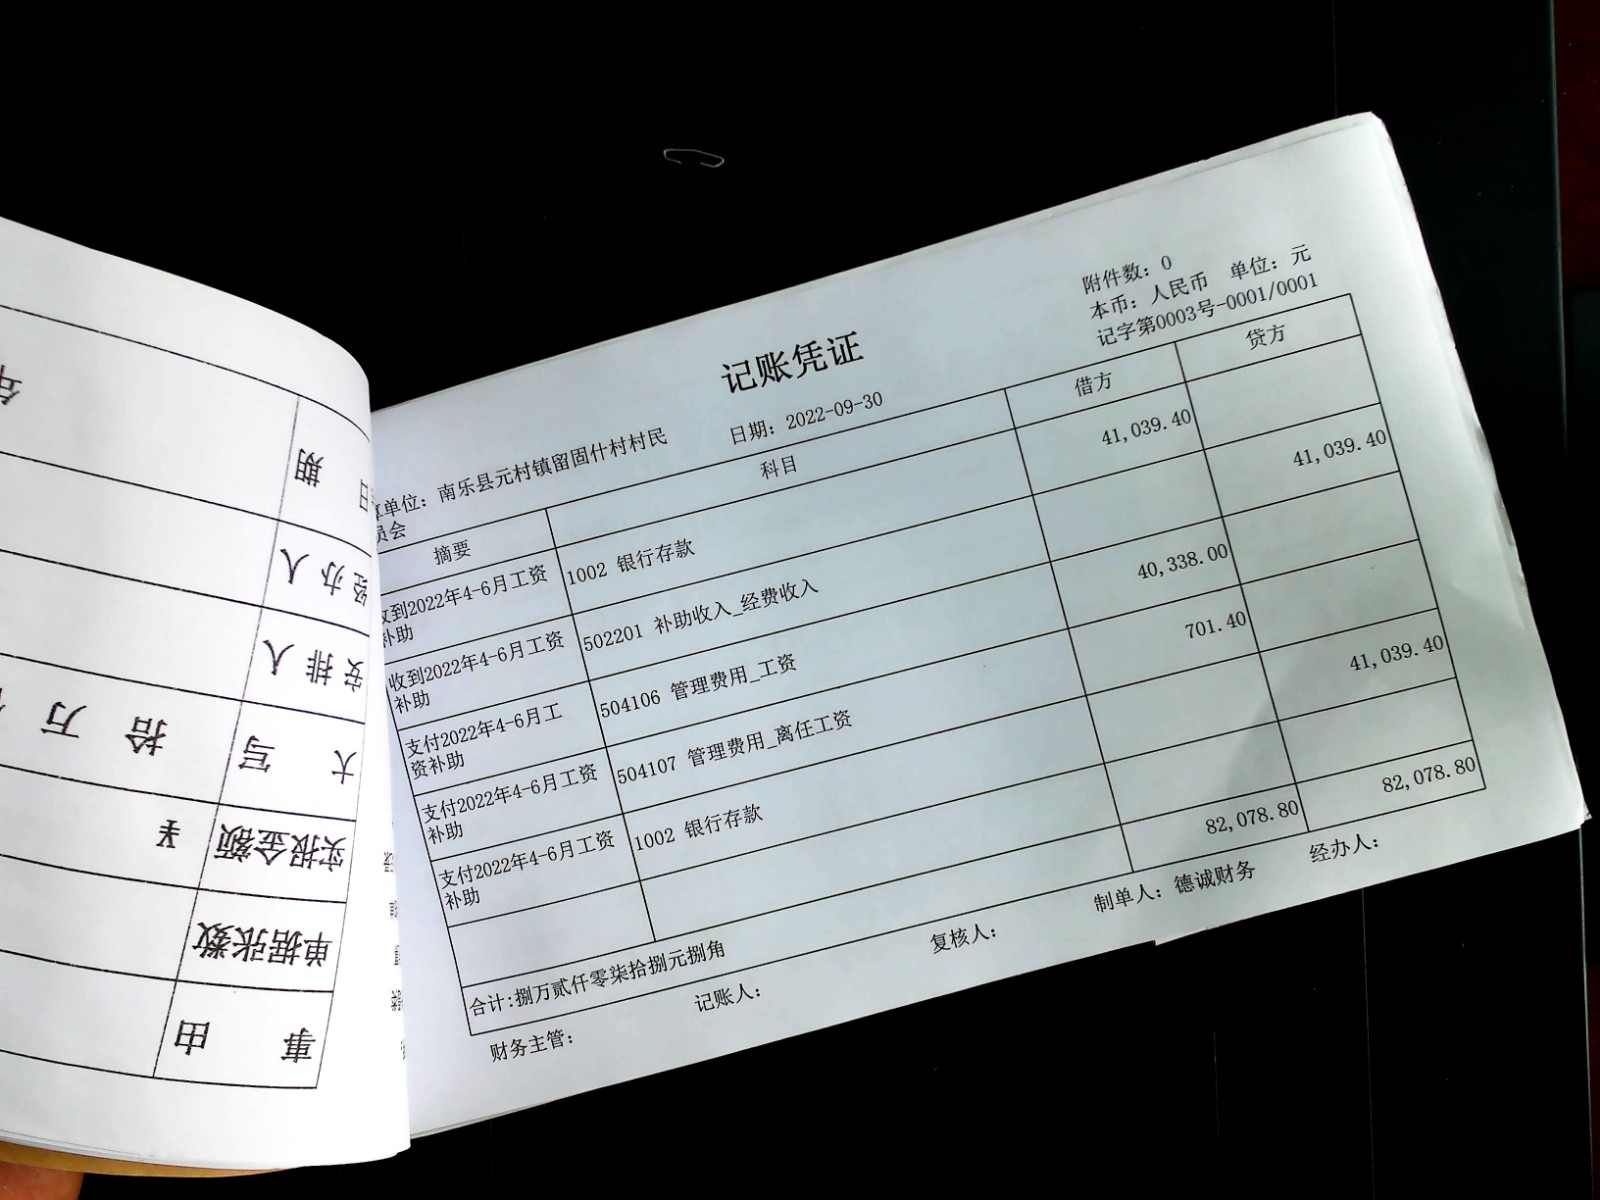 附件数：0
本币：人民币 单位：元
记字第0003号-0001/0001
记账凭证
单位：南乐县元村镇留固什村村民
员会
日期：2022-09-30
摘要 科目 借方 贷方
收到2022年4-6月工资
补助
1002 银行存款 41,039.40
收到2022年4-6月工资
补助
502201 补助收入_经费收入 41,039.40
支付2022年4-6月工
资补助
504106 管理费用_工资 40,338.00
支付2022年4-6月工资
补助
504107 管理费用_离任工资 701.40
支付2022年4-6月工资
补助
1002 银行存款 41,039.40
合计:捌万贰仟零柒拾捌元捌角 82,078.80 82,078.80
财务主管： 记账人： 复核人： 制单人：德诚财务 经办人：
事由
单据张数
实报金额 ¥
大写 拾 万
安排人
经办人
日期 年